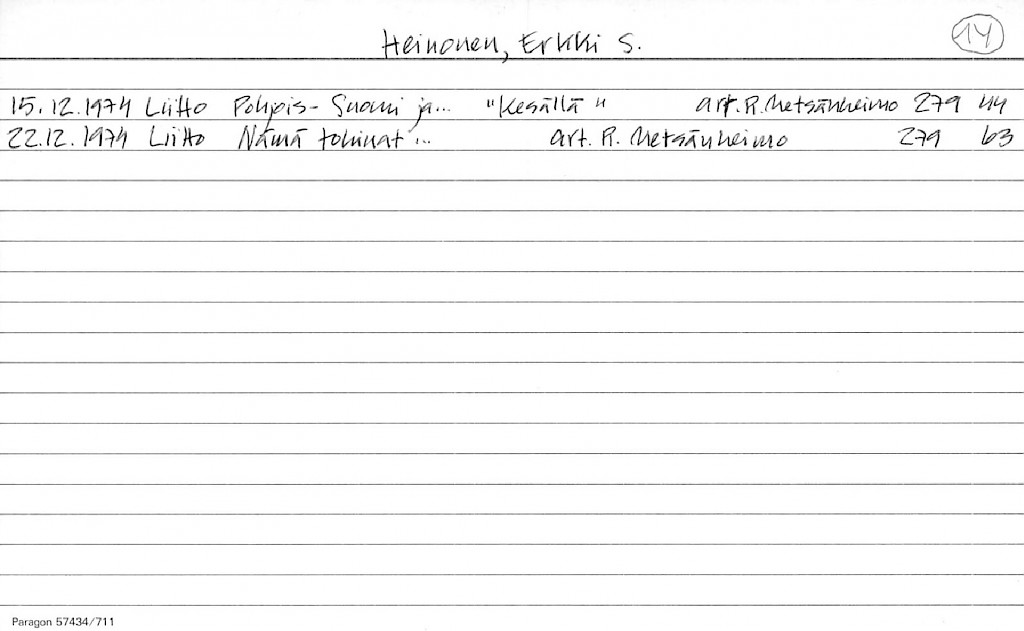 Heinonen, Erkki S. 14
15.12.1974 Liitto Pohjois-Suomi ja... "Kesällä" art. R. Metsänheimo 279 44
22.12.1974 Liitto Nämä ... art. R. Metsänheimo 279 63
Paragon 57434/711